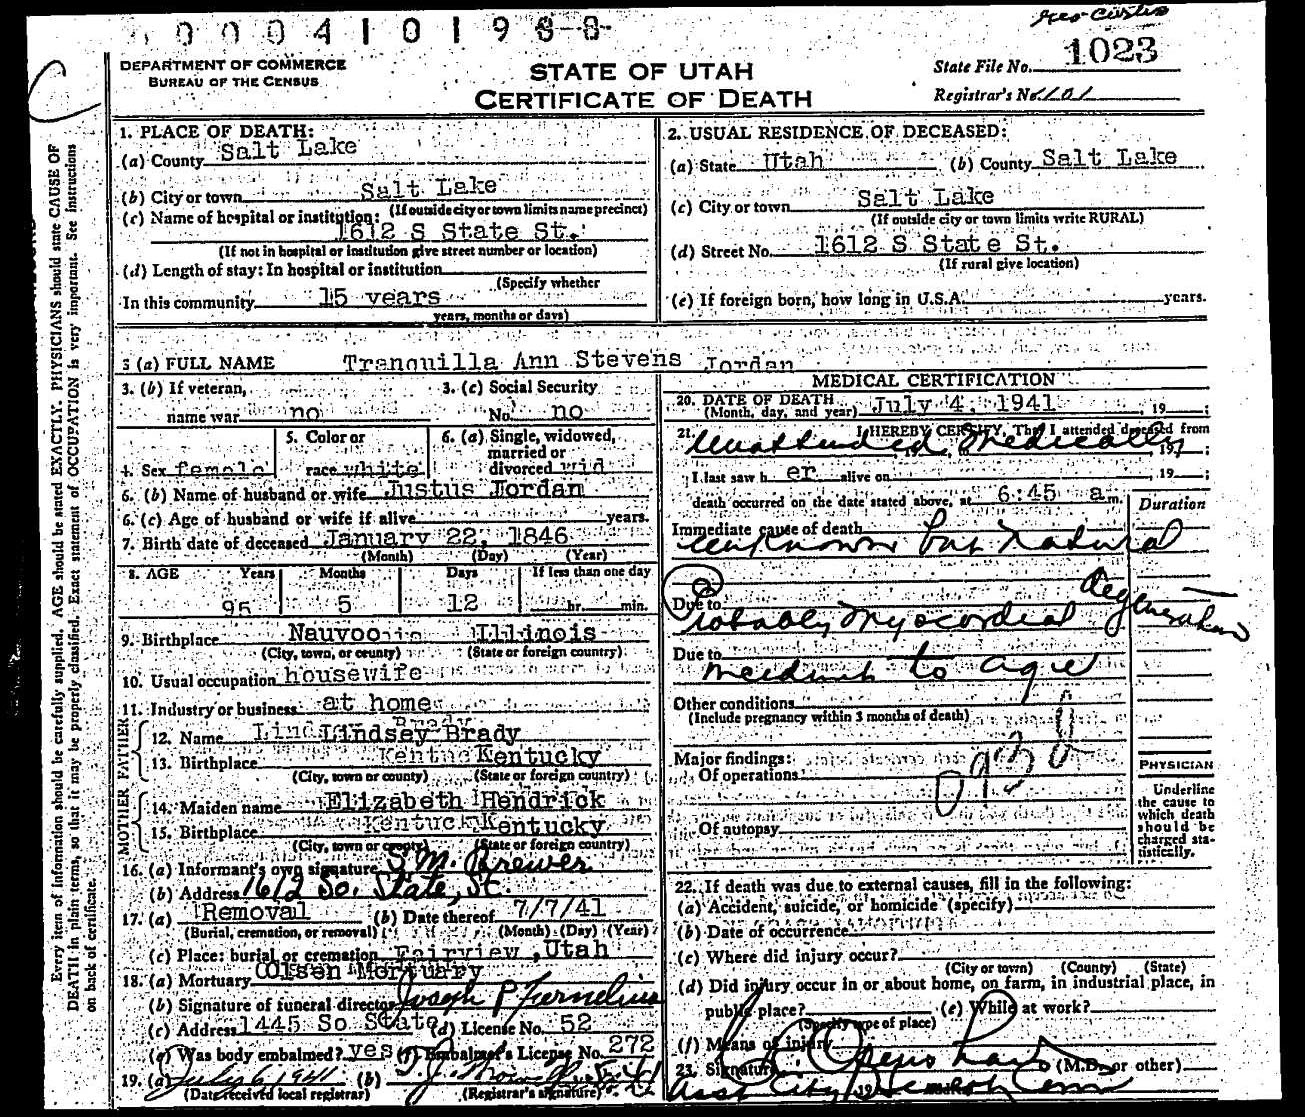 0004101988
1023
DEPARTMENT OF COMMERCE
BUREAU OF THE CENSUS
STATE OF UTAH
CERTIFICATE OF DEATH
State File No.
Registrar's No. 1101
1. PLACE OF DEATH:
(a) County Salt Lake
(b) City or town Salt Lake
(If outside city or town limits name precinct)
(c) Name of hospital or institution:
1612 S State St.
(If not in hospital or institution give street number or location)
(d) Length of stay: In hospital or institution
(Specify whether
In this community 15 years
years, months or days)
2. USUAL RESIDENCE OF DECEASED:
(a) State Utah (b) County Salt Lake
(c) City or town Salt Lake
(If outside city or town limits write RURAL)
(d) Street No. 1612 S State St.
(If rural give location)
(e) If foreign born, how long in U.S.A. years.
3 (a) FULL NAME Tranquilla Ann Stevens Jordan
3. (b) If veteran,
name war no
3. (c) Social Security
No. no
4. Sex female
5. Color or
race white
6. (a) Single, widowed,
married or
divorced wid
6. (b) Name of husband or wife Justus Jordan
6. (c) Age of husband or wife if alive years.
7. Birth date of deceased January 22, 1846
(Month) (Day) (Year)
8. AGE Years Months Days If less than one day
95 5 12 hr. min.
9. Birthplace Nauvoo Illinois
(City, town, or county) (State or foreign country)
10. Usual occupation housewife
11. Industry or business at home
FATHER
12. Name Lindsay Brady
13. Birthplace Kentucky
(City, town or county) (State or foreign country)
MOTHER
14. Maiden name Elizabeth Hendrick
15. Birthplace Kentucky
(City, town or county) (State or foreign country)
16. (a) Informant's own signature S.M. Brewer
(b) Address 1612 So. State, St.
17. (a) Removal (b) Date thereof 7/7/41
(Burial, cremation, or removal) (Month) (Day) (Year)
(c) Place: burial or cremation Fairview, Utah
18. (a) Mortuary Olsen Mortuary
(b) Signature of funeral director Joseph P Furnelius
(c) Address 1445 So State (d) License No. 52
(e) Was body embalmed? yes (f) Embalmer's License No. 272
19. (a) July 6 1941 (b)
(Date received local registrar) (Registrar's signature)
MEDICAL CERTIFICATION
20. DATE OF DEATH
(Month, day, and year) July 4, 1941, 19 ;
21. I HEREBY CERTIFY, That I attended deceased from
Unattended Medically, 19 ;
I last saw h er alive on , 19 ;
death occurred on the date stated above, at 6:45 a m.
Duration
Immediate cause of death
unknown but natural
Due to
Probably Myocardial degeneration
Due to
incident to age
Other conditions
(Include pregnancy within 3 months of death)
Major findings:
Of operations
Of autopsy
PHYSICIAN
Underline
the cause to
which death
should be
charged sta-
tistically.
22. If death was due to external causes, fill in the following:
(a) Accident, suicide, or homicide (specify)
(b) Date of occurrence
(c) Where did injury occur?
(City or town) (County) (State)
(d) Did injury occur in or about home, on farm, in industrial place, in
public place? (e) While at work?
(Specify type of place)
(f) Means of injury
23. Signature (M.D. or other)
Asst City Health Comm
Every item of information should be carefully supplied. AGE should be stated EXACTLY. PHYSICIANS should state CAUSE OF
DEATH in plain terms, so that it may be properly classified. Exact statement of OCCUPATION is very important. See instructions
on back of certificate.